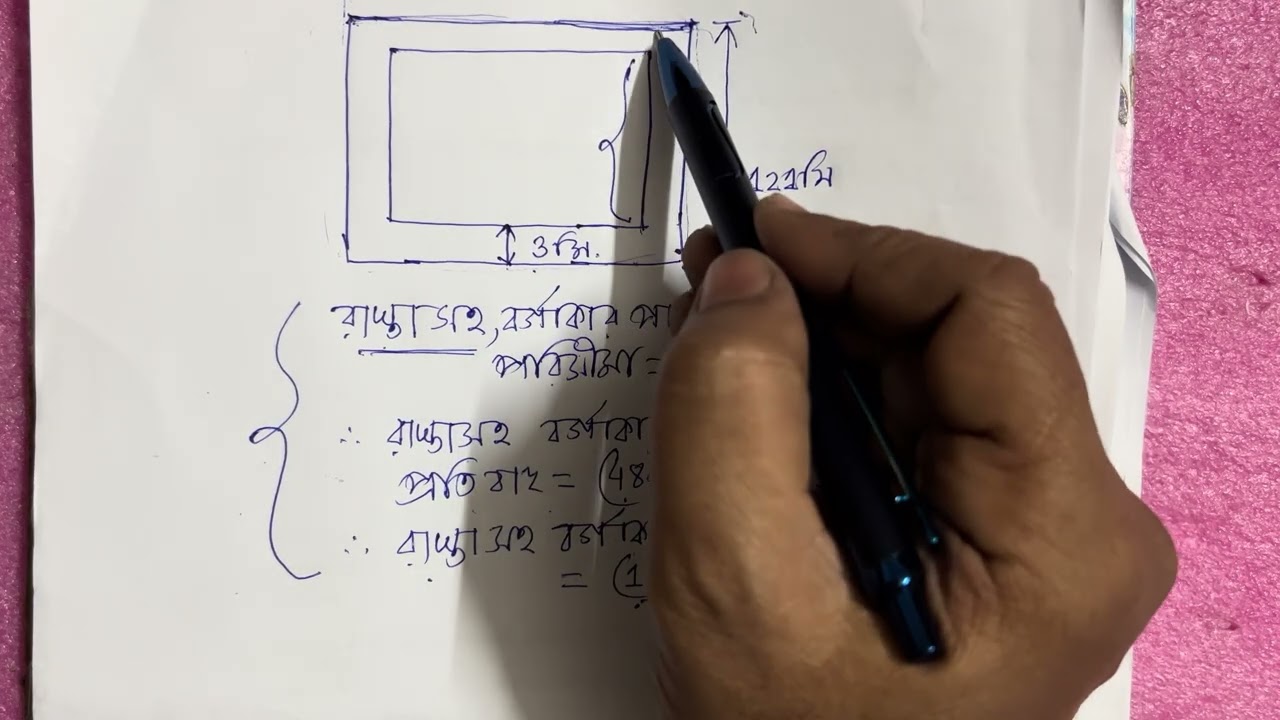 121মি
3 মি.
রাস্তাসহ, বর্গাকার পা
পরিসীমা =
∴ রাস্তাসহ বর্গাকা
প্রতি বাহু = (48
∴ রাস্তাসহ বর্গাক
= (1